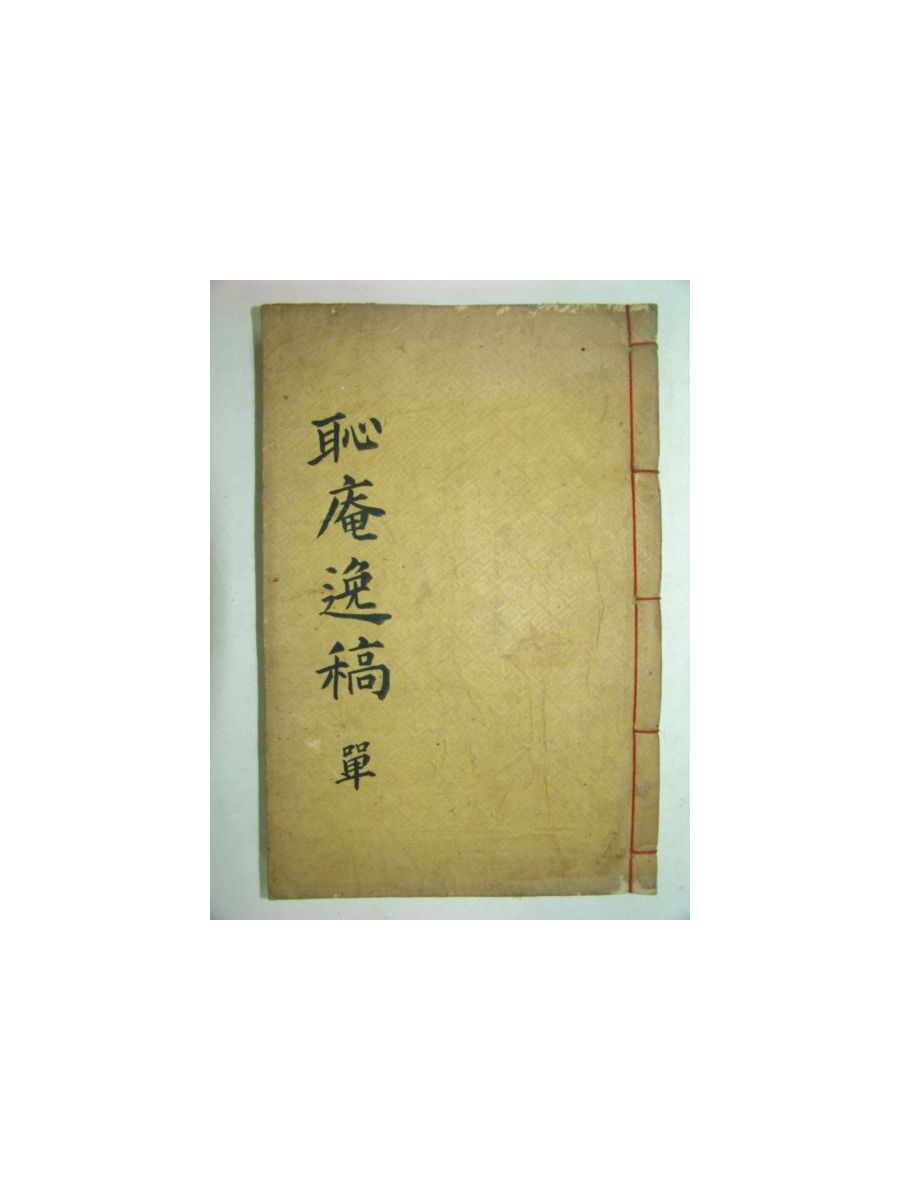 恥庵逸稿
單